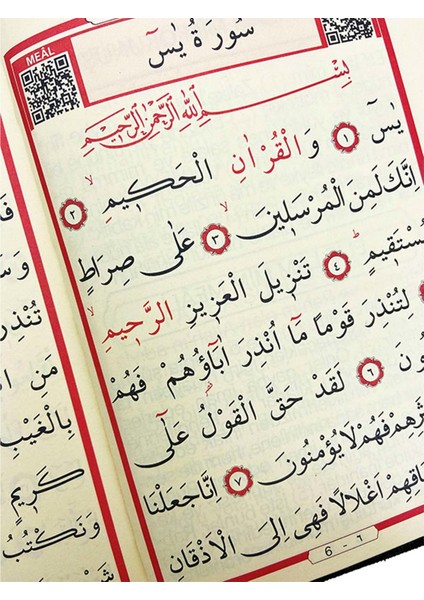 MEÂL
سُورَةُ يٰسٓ
بِسْمِ اللّٰهِ الرَّحْمٰنِ الرَّحٖيمِ
يٰسٓ ١ وَالْقُرْاٰنِ الْحَكٖيمِ ٢
اِنَّكَ لَمِنَ الْمُرْسَلٖينَ ٣ عَلٰى صِرَاطٍ
مُسْتَقٖيمٍ ٤ تَنْزٖيلَ الْعَزٖيزِ الرَّحٖيمِ
لِتُنْذِرَ قَوْمًا مَٓا اُنْذِرَ اٰبَٓاؤُ۬هُمْ فَهُمْ
ونَ ٦ لَقَدْ حَقَّ الْقَوْلُ عَلٰٓى
ثَرِهِمْ فَهُمْ لَا يُؤْمِنُونَ ٧ اِنَّا جَعَلْنَا
نَاقِهِمْ اَغْلَالًا فَهِىَ اِلَى الْاَذْقَانِ
6 - ٦
تُنْذِرْ
مَنِ
بِالْغَيْبِ
كَرٖيمٍ
وَنَكْتُبُ